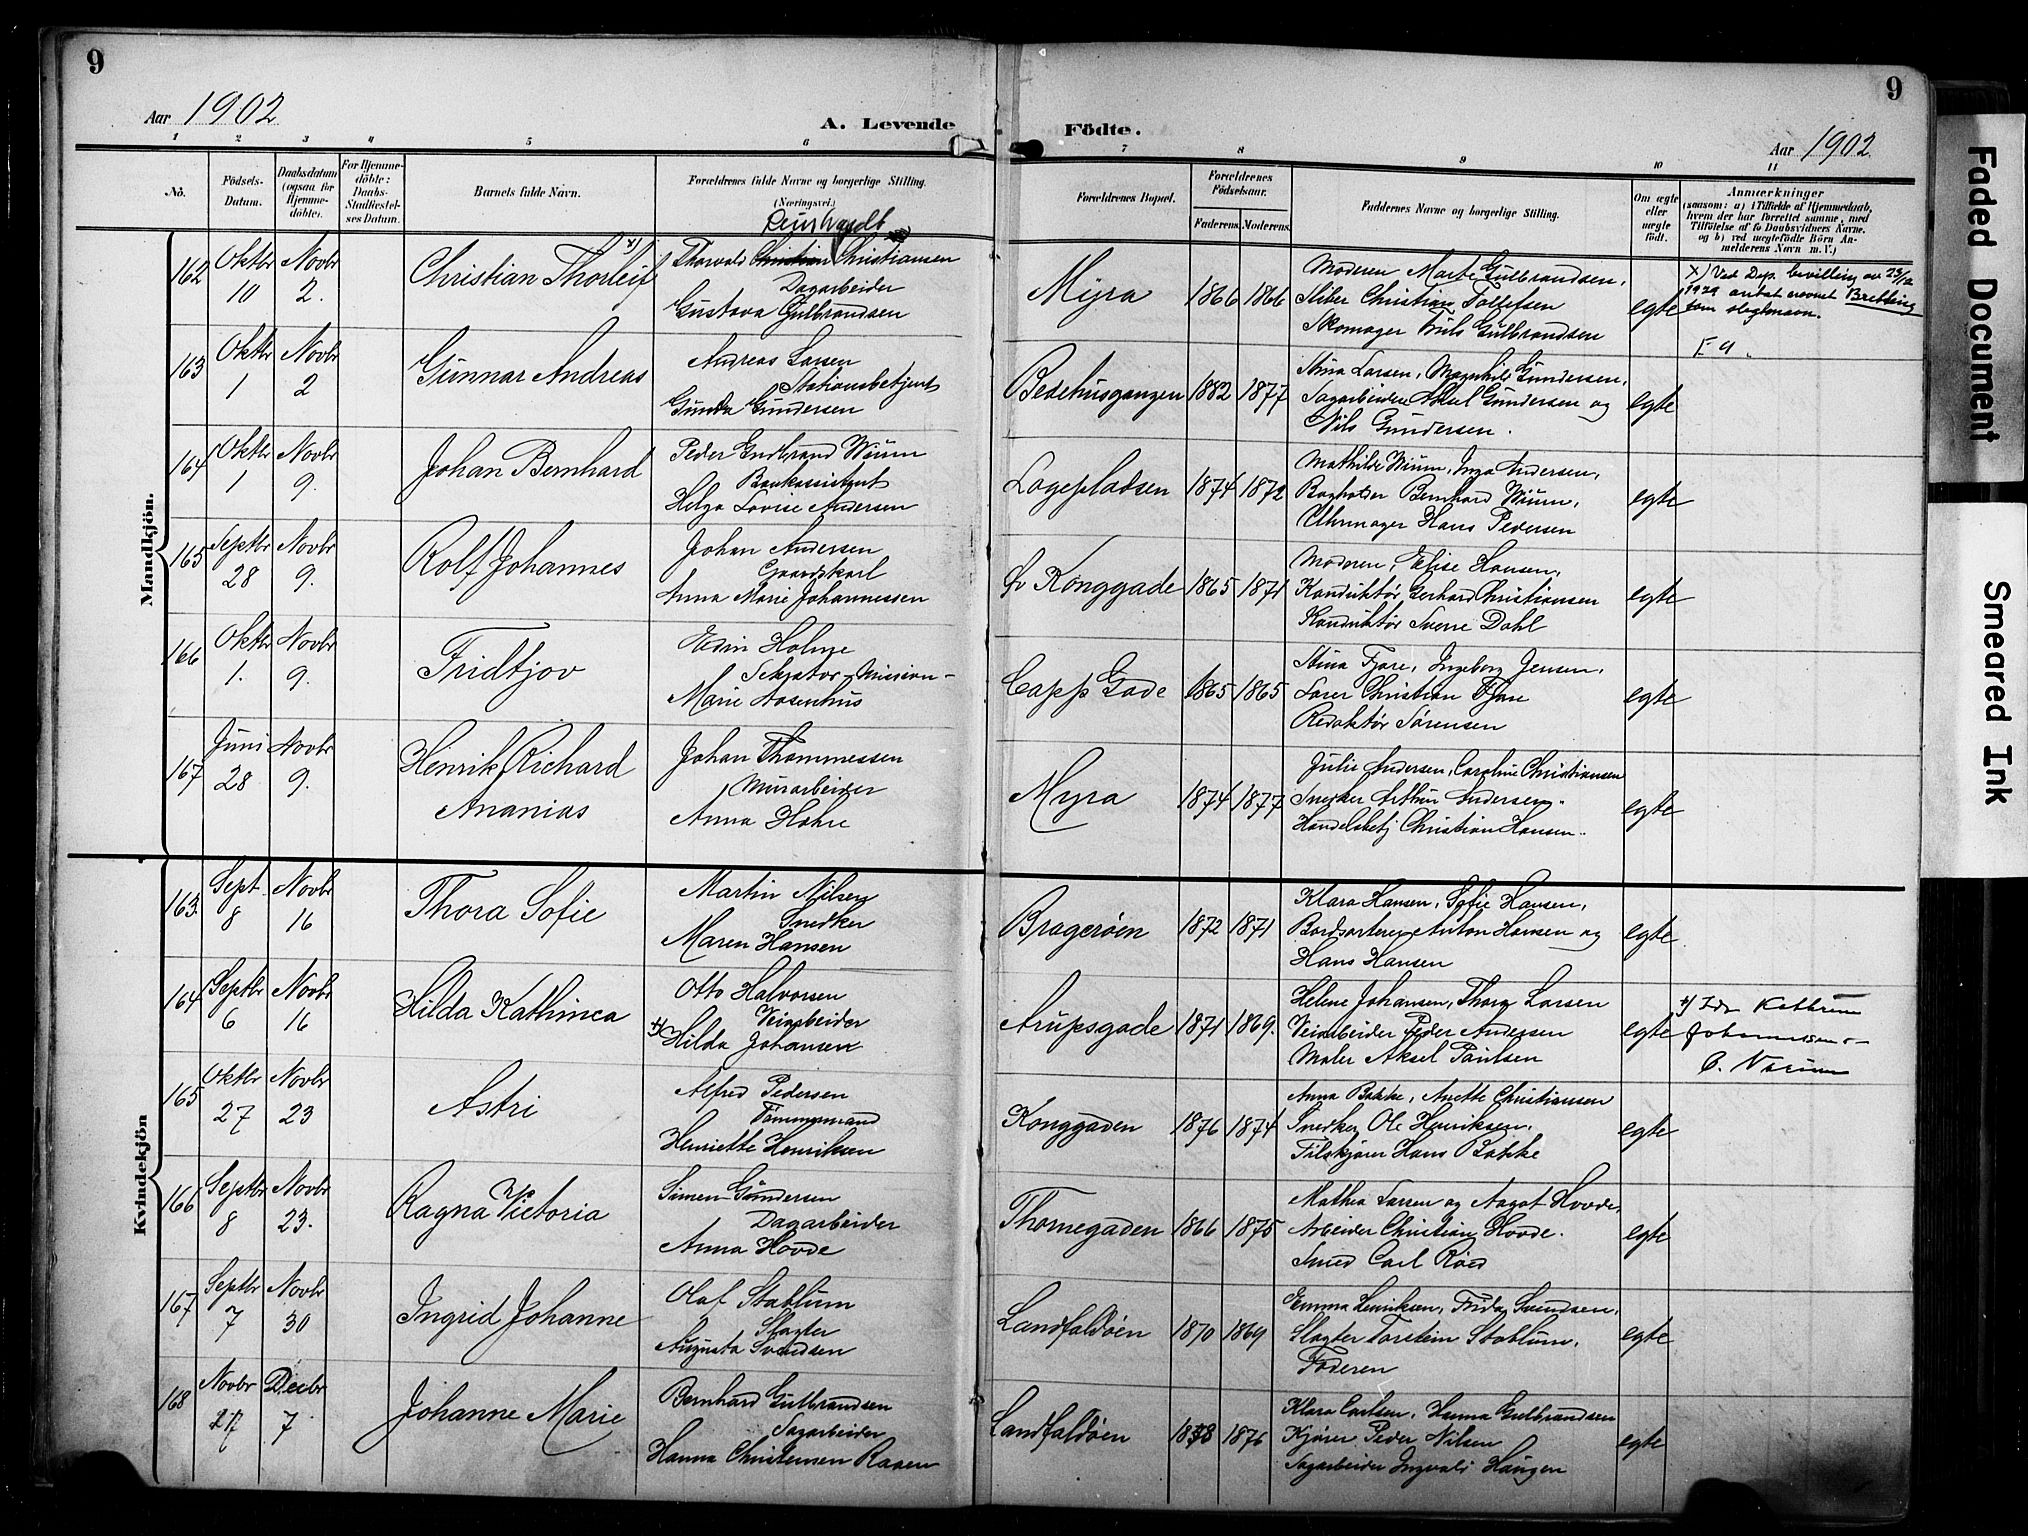 9
9
Aar 1902
A. Levende Födte.
Aar 1902
1 2 3 4 5 6 7 8 9 10 11
No.
Födsels-Datum.
Daabsdatum (ogsaa for Hjemme-döbte).
For Hjemme-döbte: Daabs-Stadfæstel-ses Datum.
Barnets fulde Navn.
Forældrenes fulde Navne og borgerlige Stilling.
(Næringsvei.)
Forældrenes Bopæl.
Forældrenes Födselsaar.
Faderens. Moderens.
Faddernes Navne og borgerlige Stilling.
Om ægte eller uægte födt.
Anmærkninger
(saasom: a) i Tilfælde af Hjemmedaab, hvem der har forrettet samme, med Tilföielse af to Daabsvidners Navne, og b) ved uægtefödte Börn An-melderens Navn m. V.)
Mandkjön.
Reinhardt
162 Oktbr 10 Novbr 2. Christian Thorleif x)
Thorvald Christian Christiansen
Dagarbeider
Gustava Gulbrandsen
Myra 1866 1866
Moderen Marte Gulbrandsen,
Sliber Christian Tollefsen
Skomager Truls Gulbrandsen
egte
x) Ved Dep. bevilling av 23/12
1929 antat navnet Brekking
som slegtsnavn.
163 Oktbr 1 Novbr 2 Gunnar Andreas
Andreas Larsen
Stationsbetjent
Gunda Gundersen
Bedehusgangen 1882 1877
Stina Larsen, Magnhild Gundersen,
Sagarbeider Aksel Gundersen og
Nils Gundersen.
egte
164 Oktbr 1 Novbr 9. Johan Bernhard
Peder Gudbrand Wium
Bankassistent
Helga Lovise Andersen
Løgepladsen 1874 1872
Mathilde Wium, Inga Andersen,
Bogholder Bernhard Wium,
Uhrmager Hans Pedersen
egte
165 Septbr 28 Novbr 9. Rolf Johannes
Johan Andersen
Gaardskarl
Anna Marie Johannessen
Øv Konggade 1865 1871
Moderen, Elise Hansen,
Konduktør Gerhard Christiansen
Konduktør Sverre Dahl
egte
166 Oktbr 1. Novbr 9. Fridtjov
Edin Holme
Marie Aasenhus
Capp Gade 1865 1865
Stina Fjare, Ingeborg Jensen,
Lærer Christian Fjare
Redaktør Sørensen
egte
167 Juni 28 Novbr 9. Henrik Richard
Ananias
Johan Thommessen
Murarbeider
Anna Hohre
Myra 1874 1877
Julie Andersen, Caroline Christiansen
Snedker Arthur Andersen,
Handelsbetj Christian Hansen.
egte
Kvindekjön
163. Sept. 8 Novbr 16 Thora Sofie
Martin Nilsen
Snedker
Maren Hansen
Bragerøen 1872 1871
Klara Hansen, Sofie Hansen,
Bordsorterer Anton Hansen og
Hans Hansen
egte
164 Septbr 6 Novbr 16 Hilda Kathinca
Otto Halvorsen
Veiarbeider
x) Hilda Johansen
Arupsgade 1871 1869.
Helene Johansen, Thora Larsen
Veiarbeider Peder Andersen
Maler Aksel Paulsen
egte
x) Ida Kathrine
165 Oktbr 27 Novbr 23 Astri
Alfred Pedersen
Tømmermand
Henriette Henriksen
Konggaden 1876 1874
Anna Bakke, Anette Christiansen
Snedker Ole Henriksen,
Tilskjærer Hans Bakke
egte
166 Septbr 8 Novbr 23. Ragna Victoria
Simen Gundersen
Dagarbeider
Anna Hovde
Thornegaden 1866 1875
Mathea Larsen og Aagot Hovde,
Arbeider Christian Hovde.
Smed Carl Røed
egte
167 Septbr 7 Novbr 30 Ingrid Johanne
Olaf Stablum
Slagter
Augusta Svendsen
Landfaldøen 1870 1869
Emma Henriksen, Frida Svendsen,
Slagter Torstein Stablum,
Faderen
egte
168 Novbr 27 Decbr 7 Johanne Marie
Bernhard Gulbrandsen
Sagarbeider
Hanna Christensen Raaen
Landfaldøen 1878 1876
Klara Carlsen, Hanna Gulbrandsen
Kjører Peder Nilsen
Sagarbeider Ingvald Haugen
egte
Faded Document
Smeared Ink